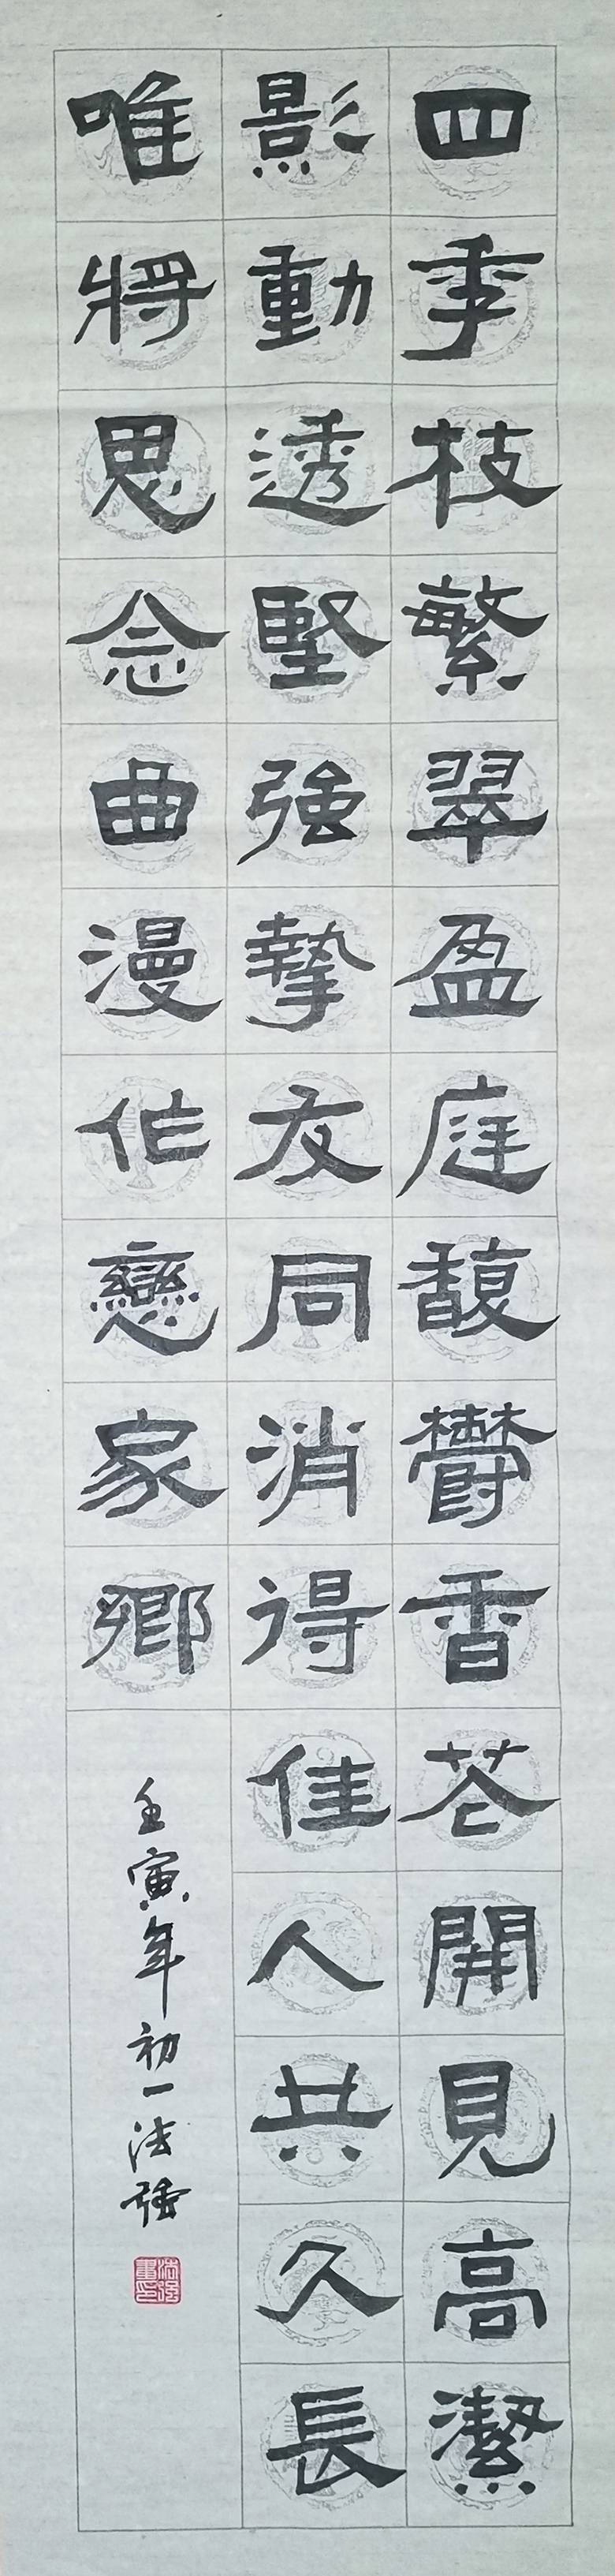 四季枝繁翠盈庭馥欝香花開見高潔
影動透堅強摯友同消得佳人共久長
唯將思念曲漫作戀家鄉
壬寅年初一法強